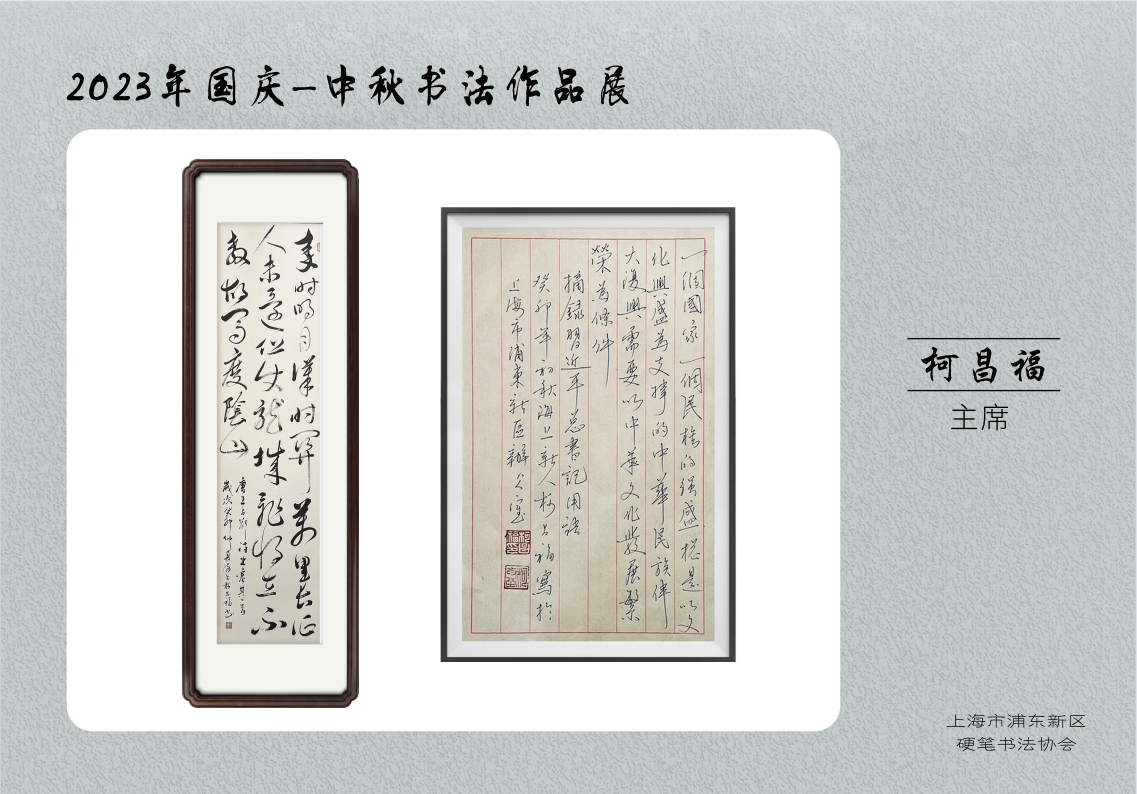 2023年国庆–中秋书法作品展
秦时明月汉时关万里长征
人未还但使龙城飛将在不
教胡馬度陰山
唐王昌齡詩出塞其一首
歲次癸卯仲夏海上柯昌福書
一個國家一個民族的强盛總是以文
化興盛為支撐的中華民族偉
大復興需要以中華文化發展繁
榮為條件
摘録習近平總書記用語
癸卯年初秋海上新人柯昌福寫於
上海市浦東新區辦公室
柯昌福
主席
上海市浦东新区
硬笔书法协会